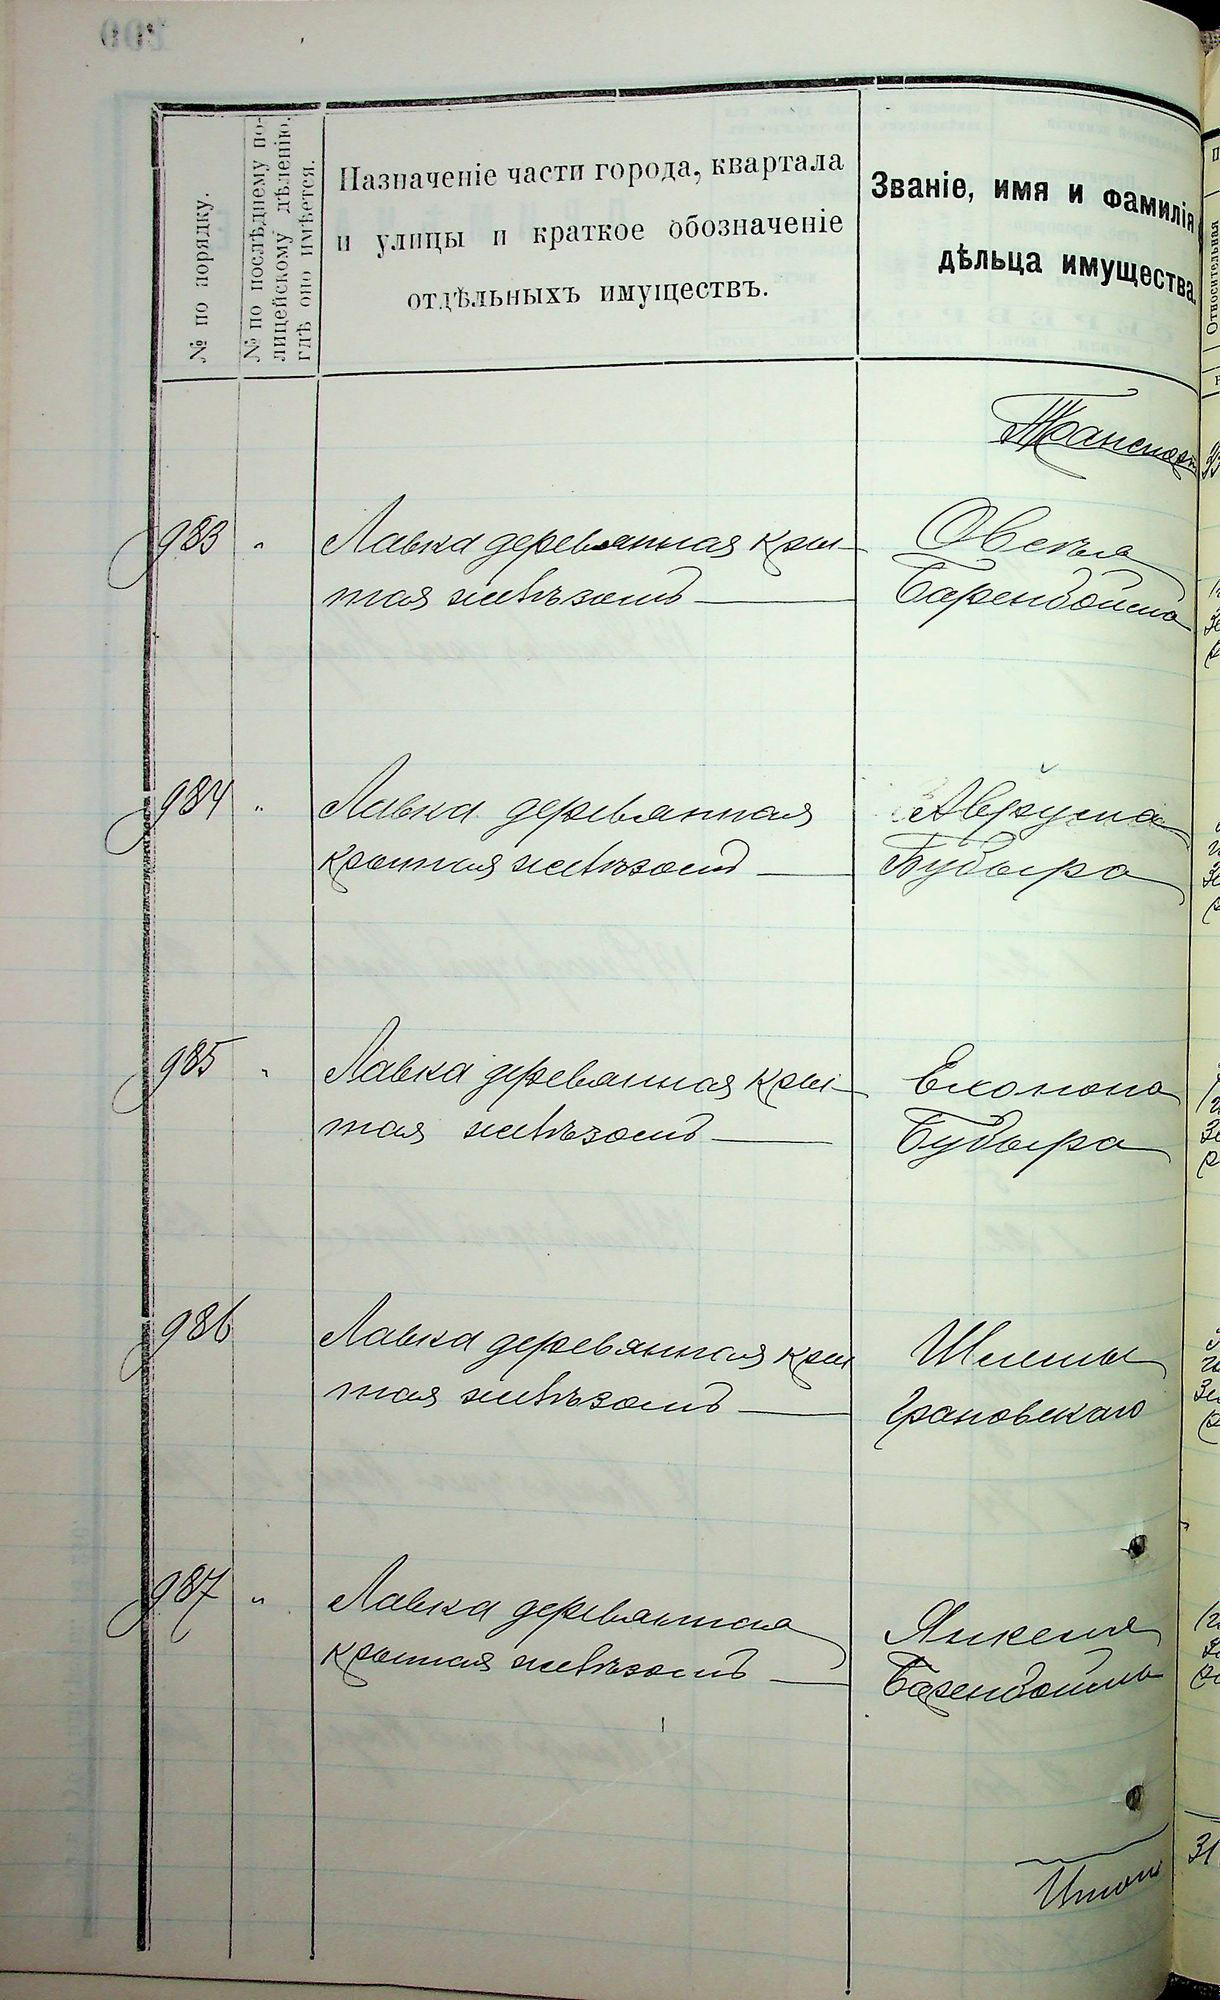 № по порядку.
№ по послѣднему по-
лицейскому дѣленію.
гдѣ оно имѣется.
Назначеніе части города, квартала
и улицы и краткое обозначеніе
отдѣльныхъ имуществъ.
Званіе, имя и фамилія
дѣльца имущества.
Относительная
Транспорт
983 " Лавка деревянная кры-
тая желѣзомъ
Овсѣя
Баренбойма
984 " Лавка деревянная
крытая желѣзомъ
Аврума
Бубыра
985 " Лавка деревянная кры-
тая желѣзомъ
Ехонона
Бубыра
986 Лавка деревянная кры
тая желѣзомъ
Шлемы
Грановскаго
987 " Лавка деревянная
крытая желѣзомъ
Янкеля
Баренбойма
Итого
31